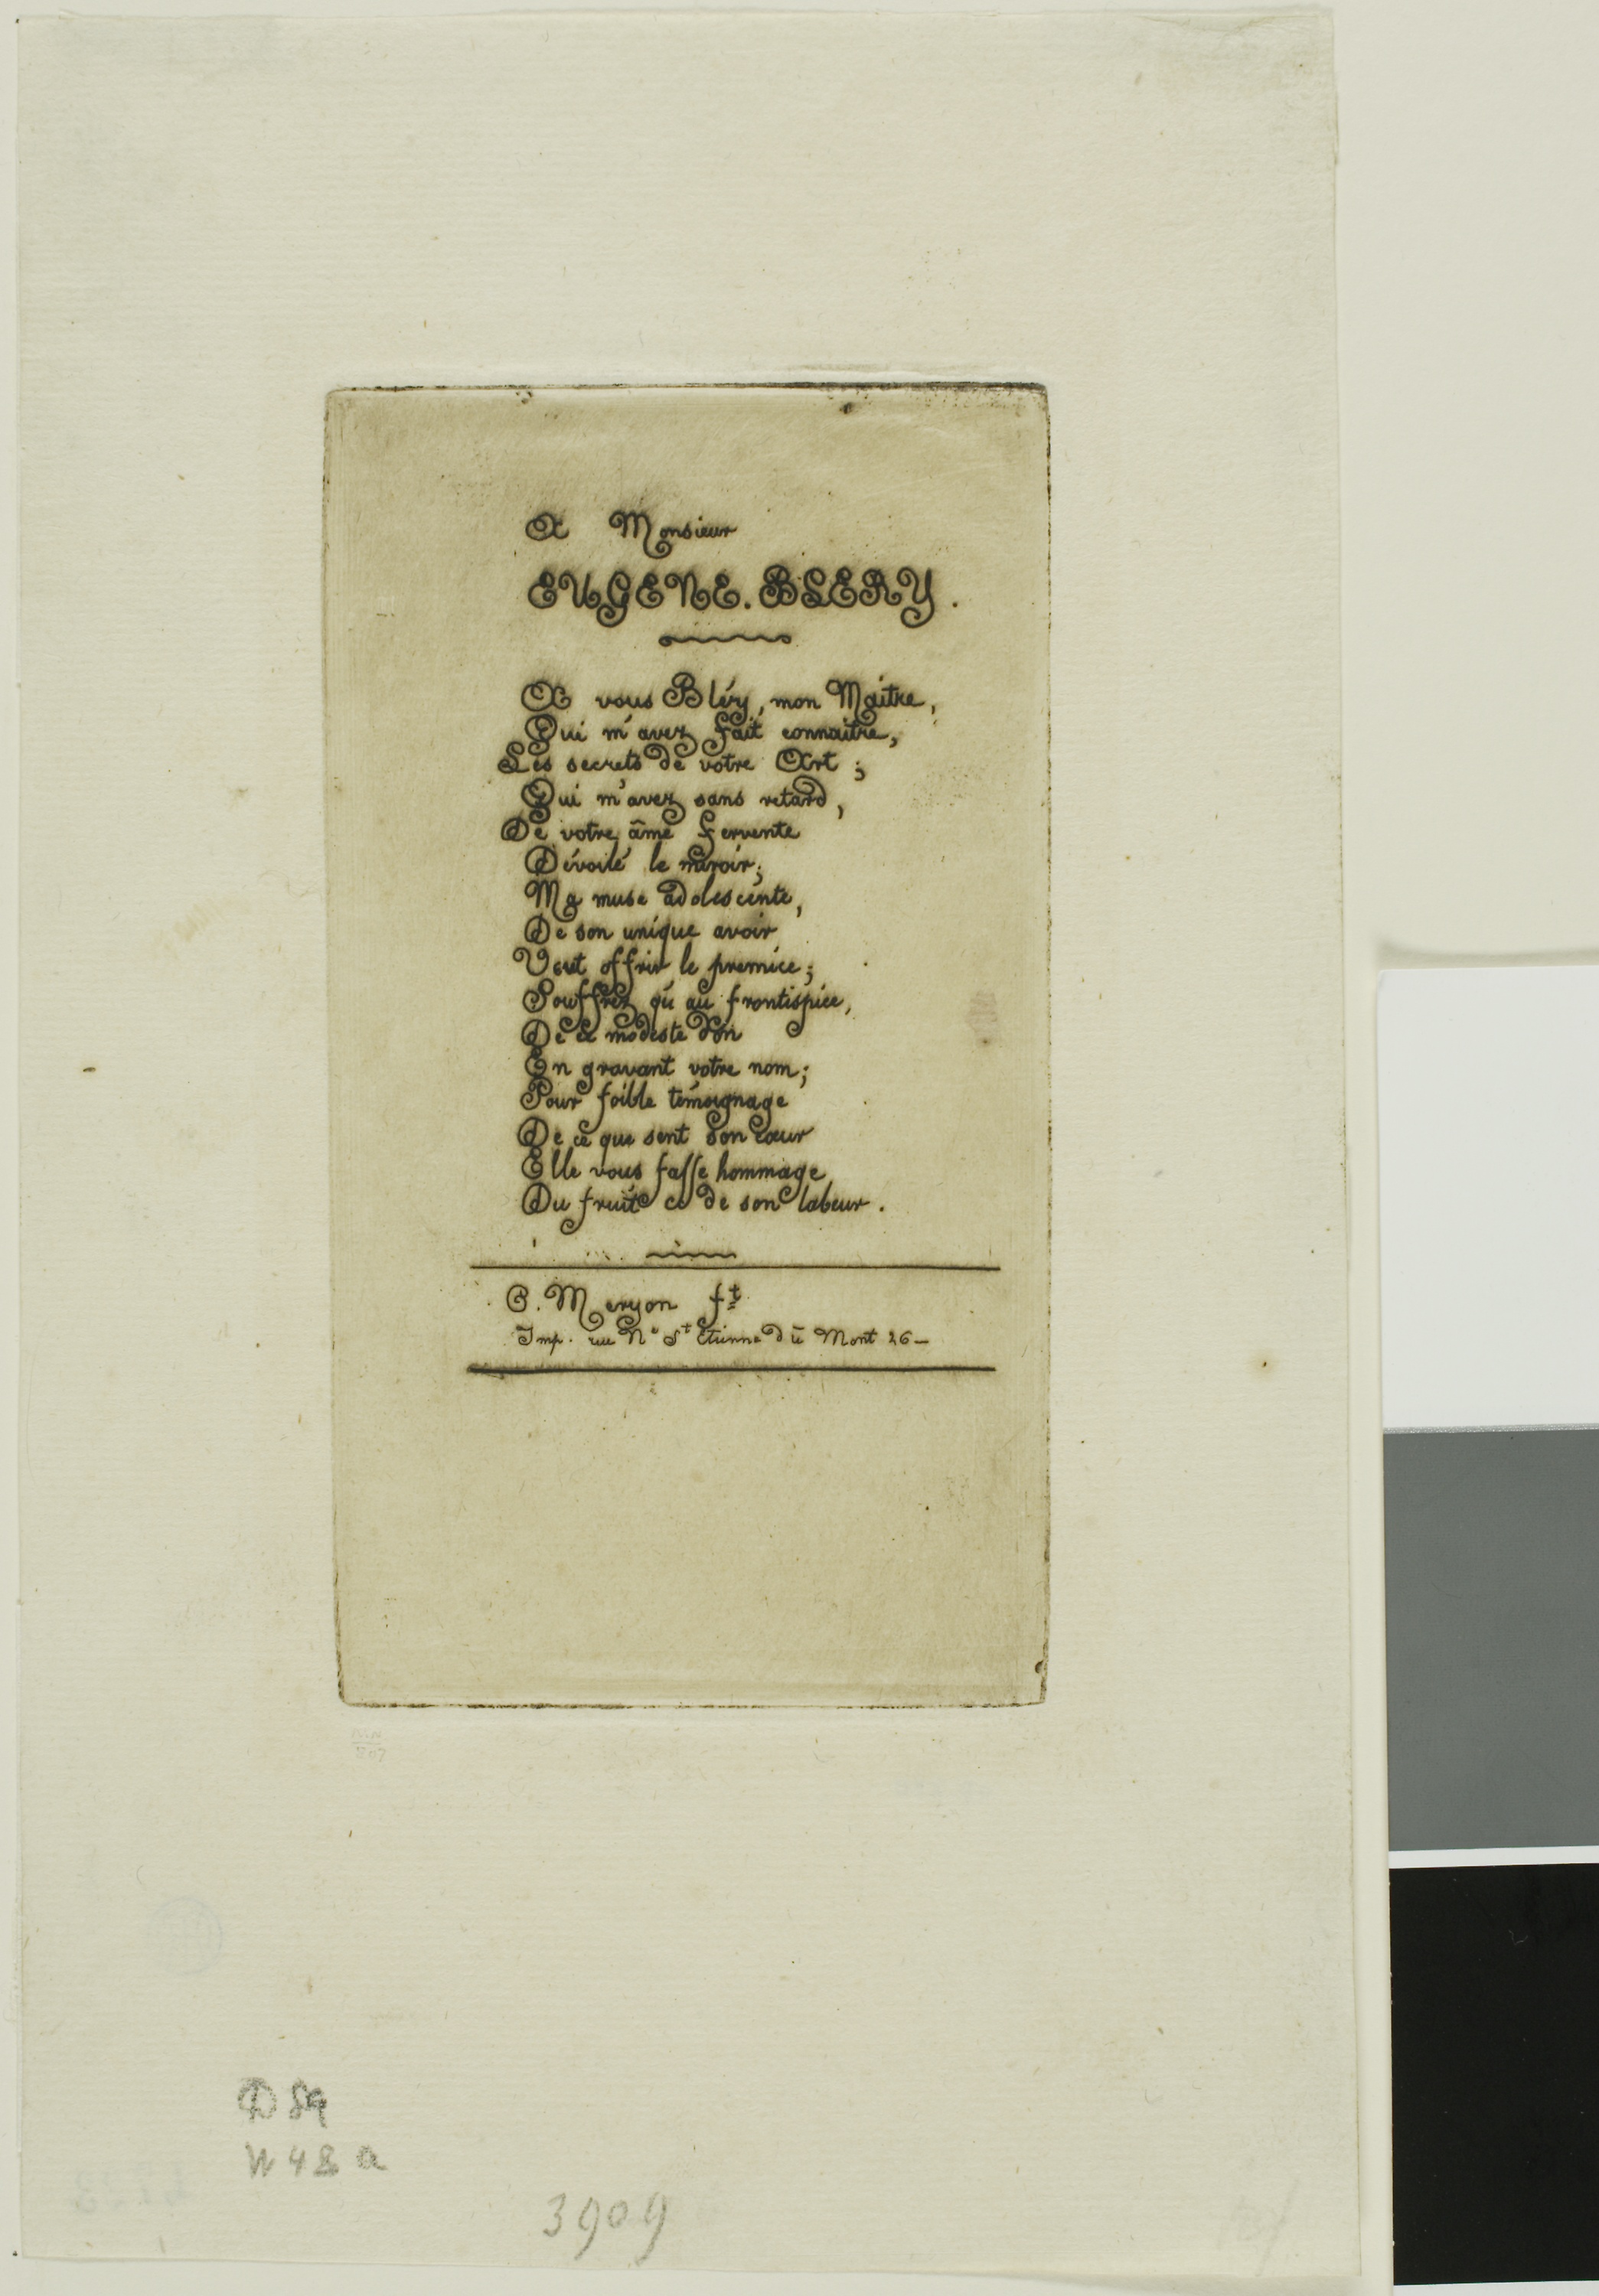 A Monsieur
EUGENE. BLERY.
A vous Bléry, mon Maitre,
Qui m'avez fait connaitre,
Les secrets de votre Art ;
Qui m'avez sans retard,
De votre âme fervente
Dévoilé le miroir;
Ma muse adolescente,
De son unique avoir
Veut offrir le premice;
Souffrez qu'au frontispice,
De ce modeste don
En gravant votre nom;
Pour foible témoignage
De ce que sent son cœur
Elle vous fasse hommage
Du fruit ce de son labeur.
C. Meryon ft
Imp. rue Ne St Etienne du Mont 26 -
D 89
W 48 a
3909